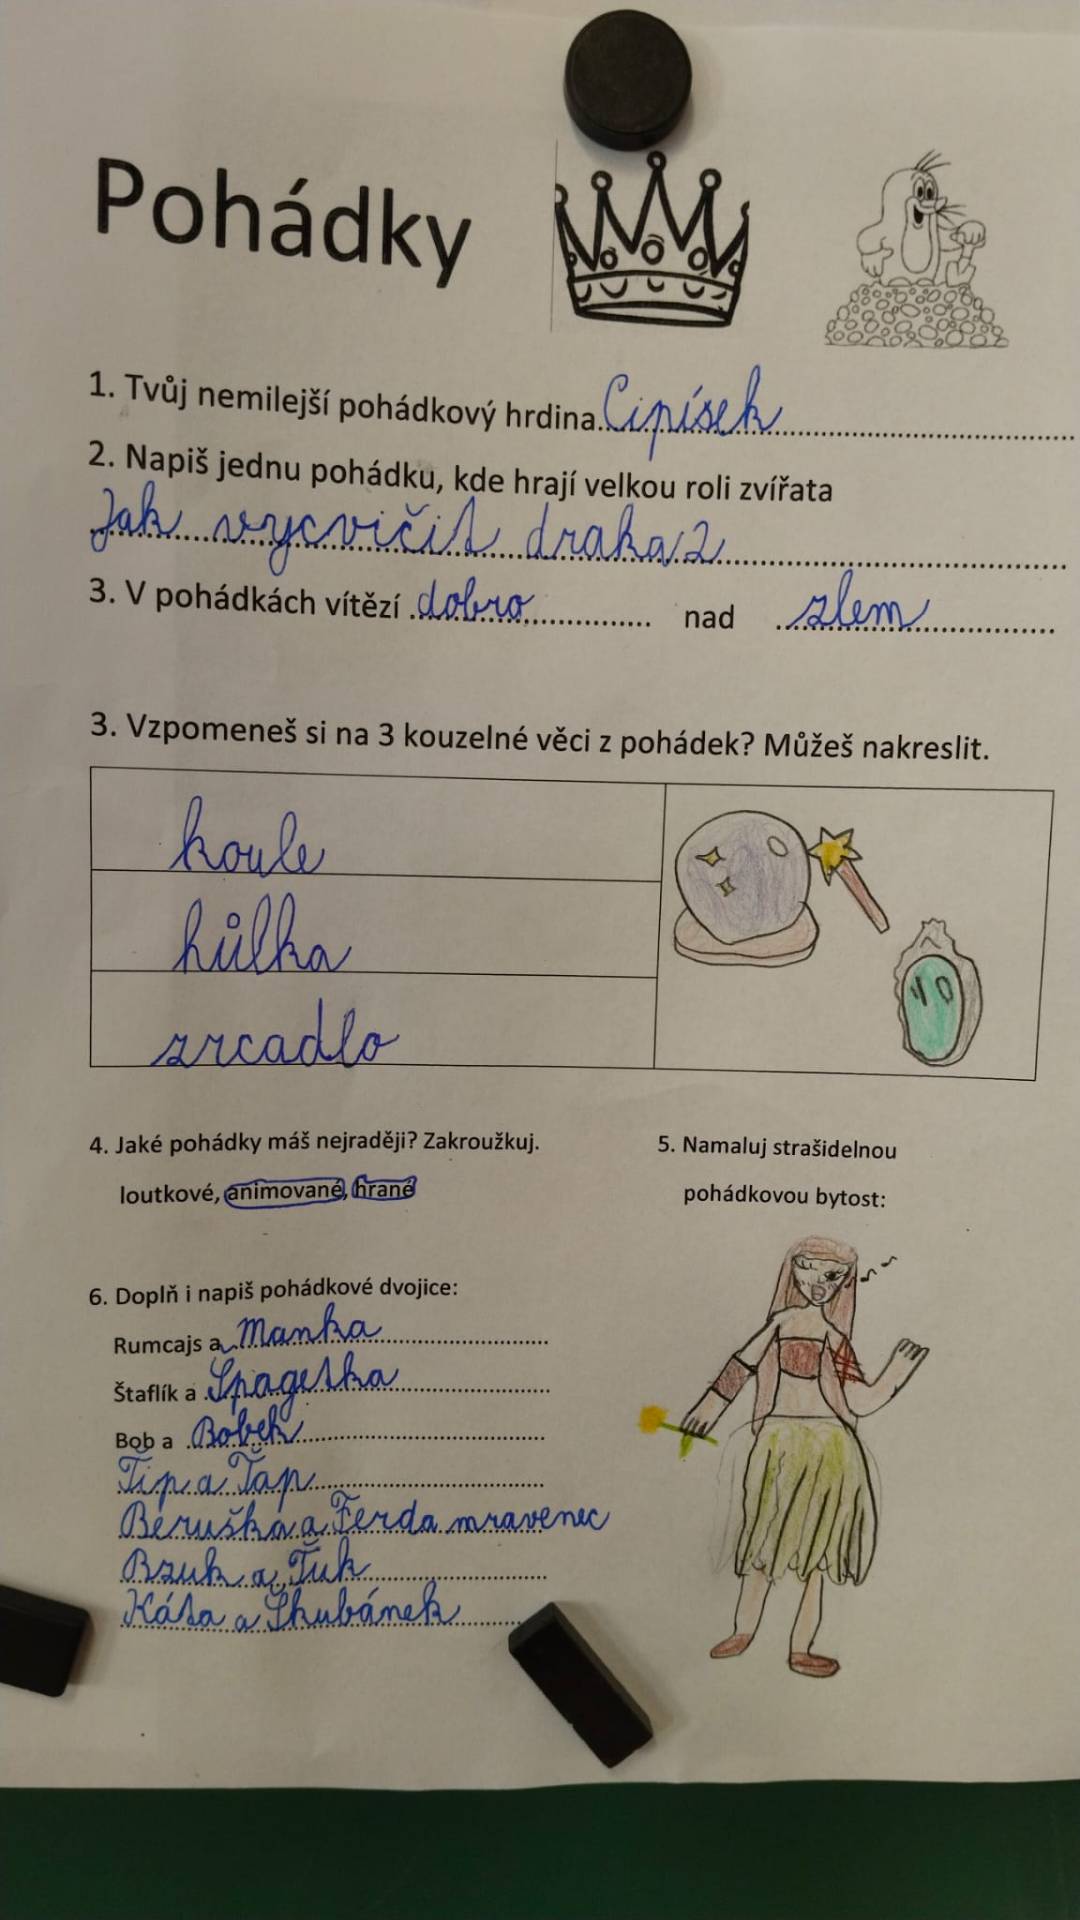 Pohádky
1. Tvůj nemilejší pohádkový hrdina Cipísek
2. Napiš jednu pohádku, kde hrají velkou roli zvířata
Jak vycvičit draka 2
3. V pohádkách vítězí dobro nad zlem
3. Vzpomeneš si na 3 kouzelné věci z pohádek? Můžeš nakreslit.
koule
hůlka
zrcadlo
4. Jaké pohádky máš nejraději? Zakroužkuj.
loutkové, animované, hrané
5. Namaluj strašidelnou
pohádkovou bytost:
6. Doplň i napiš pohádkové dvojice:
Rumcajs a Manka
Štaflík a Špagetka
Bob a Bobek
Ťip a Ťap
Beruška a Ferda mravenec
Bzuk a Ťuk
Káťa a Škubánek